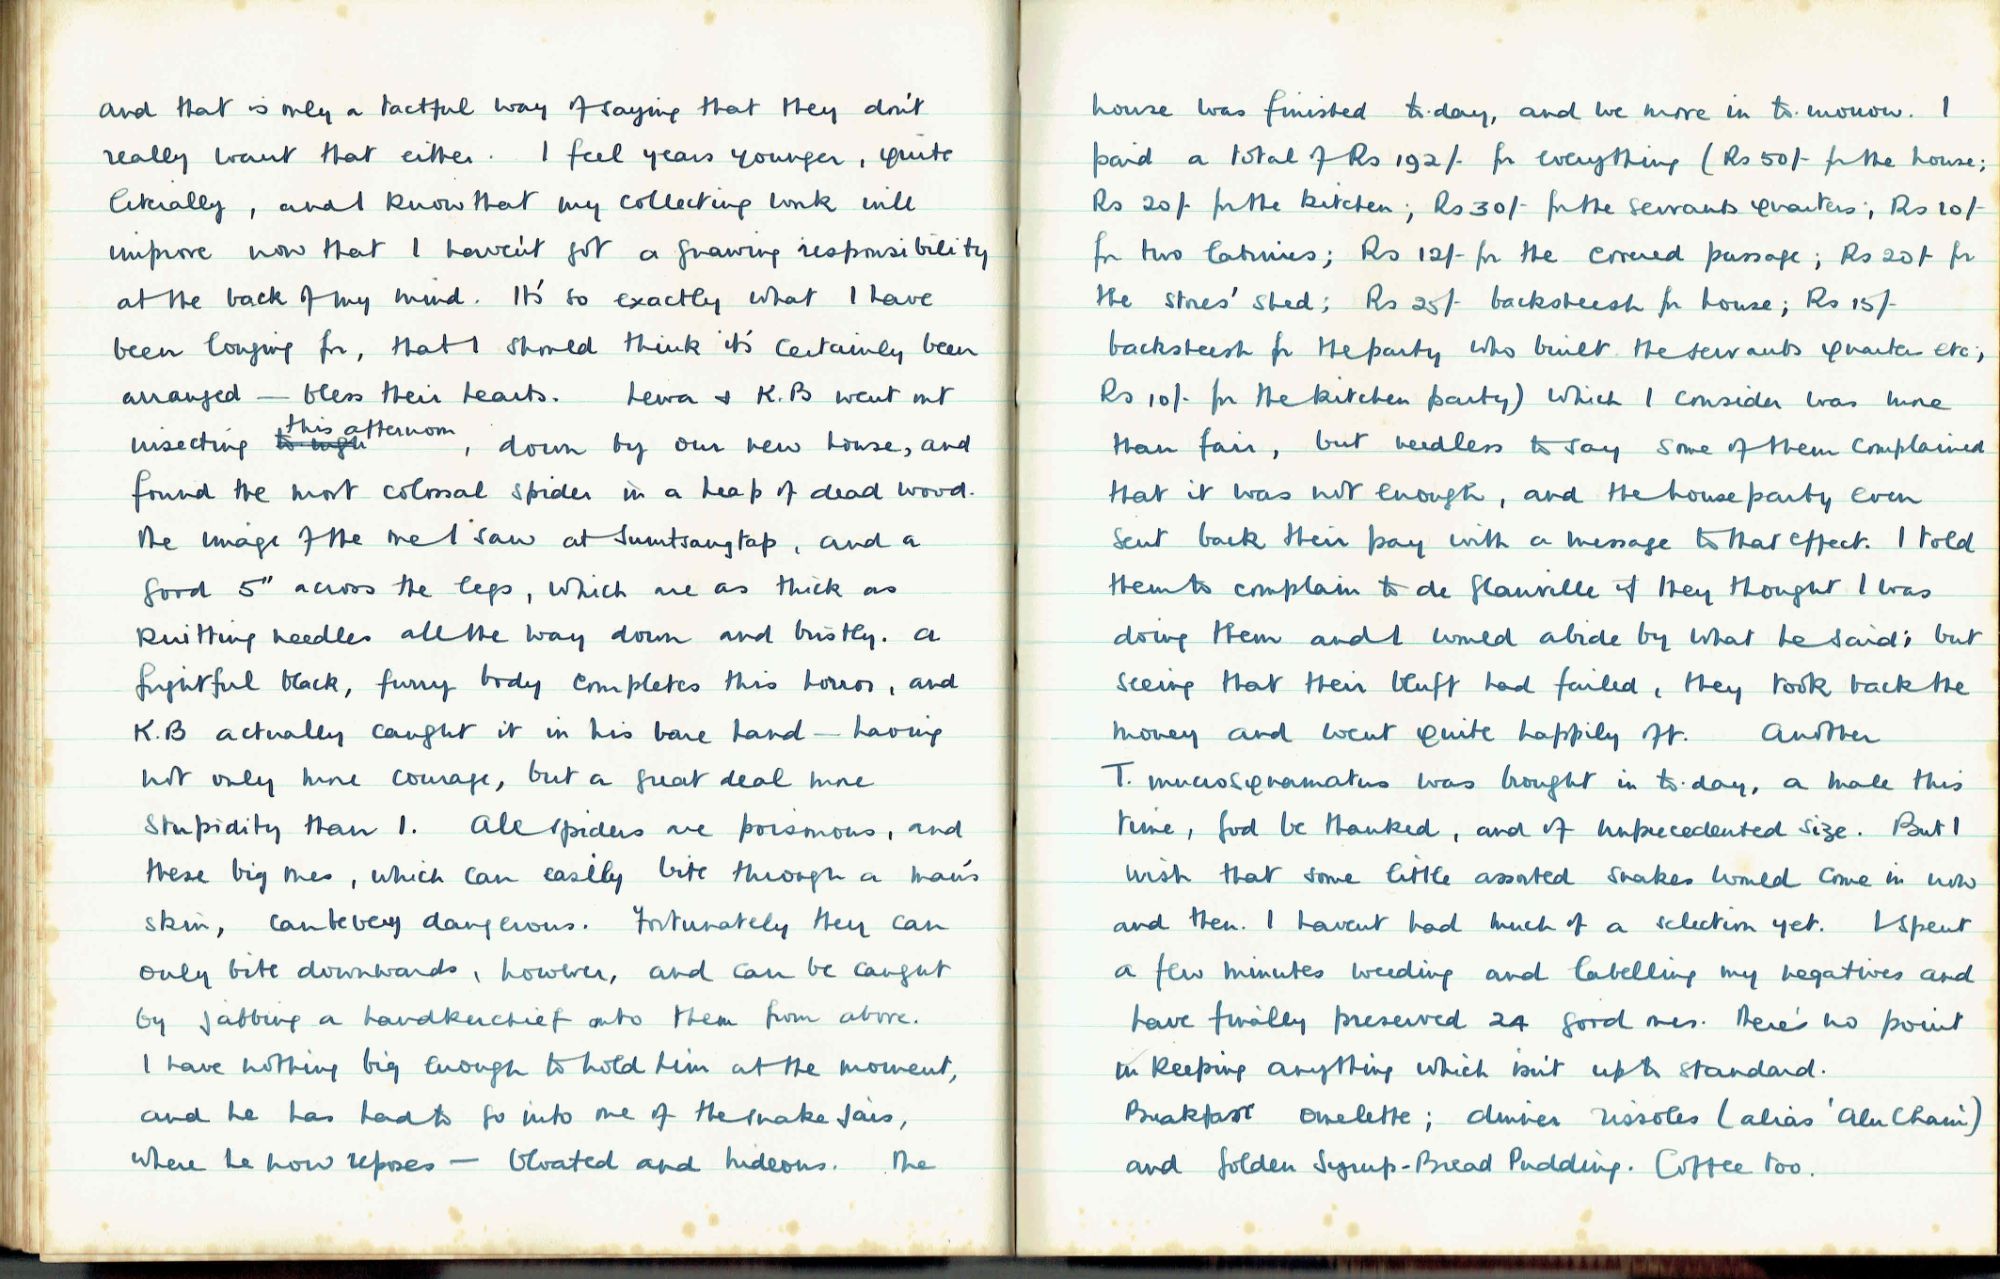 and that is only a tactful way of saying that they don't
really want that either. I feel years younger, quite
literally, and I know that my collecting work will
improve now that I haven't got a gnawing responsibility
at the back of my mind. It's so exactly what I have
been longing for, that I should think it's certainly been
arranged — bless their hearts. Lewa & K.B went out
insecting to nigh this afternoon, down by our new house, and
found the most colossal spider in a heap of dead wood.
The image of the one I saw at Sumtsangtap, and a
good 5" across the legs, which are as thick as
knitting needles all the way down and bristly. A
frightful black, furry body completes this horror, and
K.B actually caught it in his bare hand — having
not only more courage, but a great deal more
stupidity than I. All spiders are poisonous, and
these big ones, which can easily bite through a man's
skin, can be very dangerous. Fortunately they can
only bite downwards, however, and can be caught
by jabbing a handkerchief onto them from above.
I have nothing big enough to hold him at the moment,
and he has had to go into one of the snake jars,
where he now reposes — bloated and hideous. The
house was finished to-day, and we move in to-morrow. I
paid a total of Rs 192/- for everything (Rs 50/- for the house;
Rs 20/- for the kitchen; Rs 30/- for the servants quarters; Rs 10/-
for two latrines; Rs 12/- for the covered passage; Rs 20/- for
the stores' shed; Rs 25/- backsheesh for house; Rs 15/-
backsheesh for the party who built the servants quarters etc;
Rs 10/- for the kitchen party) which I consider was more
than fair, but needless to say some of them complained
that it was not enough, and the house party even
sent back their pay with a message to that effect. I told
them to complain to de Glanville if they thought I was
doing them and I would abide by what he said; but
seeing that their bluff had failed, they took back the
money and went quite happily off. Another
T. mucrosquamatus was brought in to-day, a male this
time, God be thanked, and of unprecedented size. But I
wish that some little assorted snakes would come in now
and then. I havent had much of a selection yet. I spent
a few minutes weeding and labelling my negatives and
have finally preserved 24 good ones. There's no point
in keeping anything which isn't up to standard.
Breakfast omelette; dinner rissoles (alias 'Alu Cham')
and Golden Syrup-Bread Pudding. Coffee too.